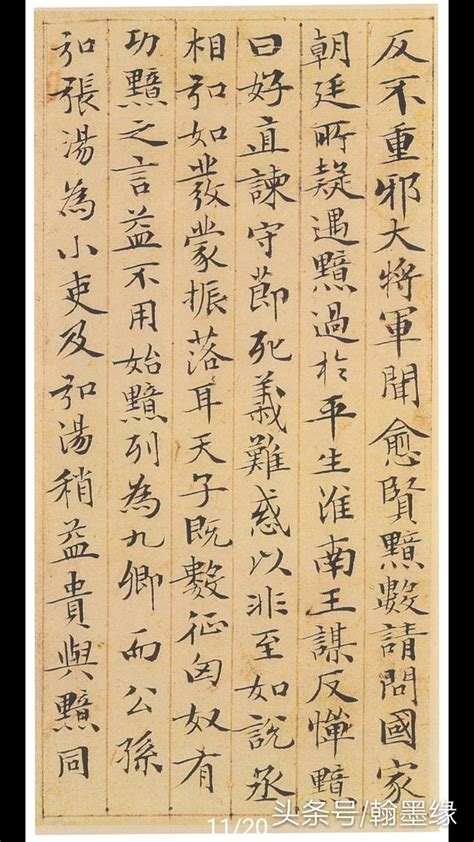 反不重邪大将軍聞愈賢黯數請問國家
朝廷所疑遇黯過於平生淮南王謀反憚黯
曰好直諫守節死義難惑以非至如說丞
相弘如發蒙振落耳天子既數征匈奴有
功黯之言益不用始黯列為九卿而公孫
弘張湯為小吏及弘湯稍益貴與黯同
11/20
头条号/翰墨缘